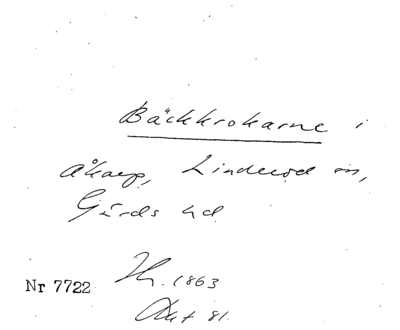 Bäckkrokarne i
Åkarp, Linderöd sn,
Gärds hd
Nr 7722 Hr. 1863
Okt 81.